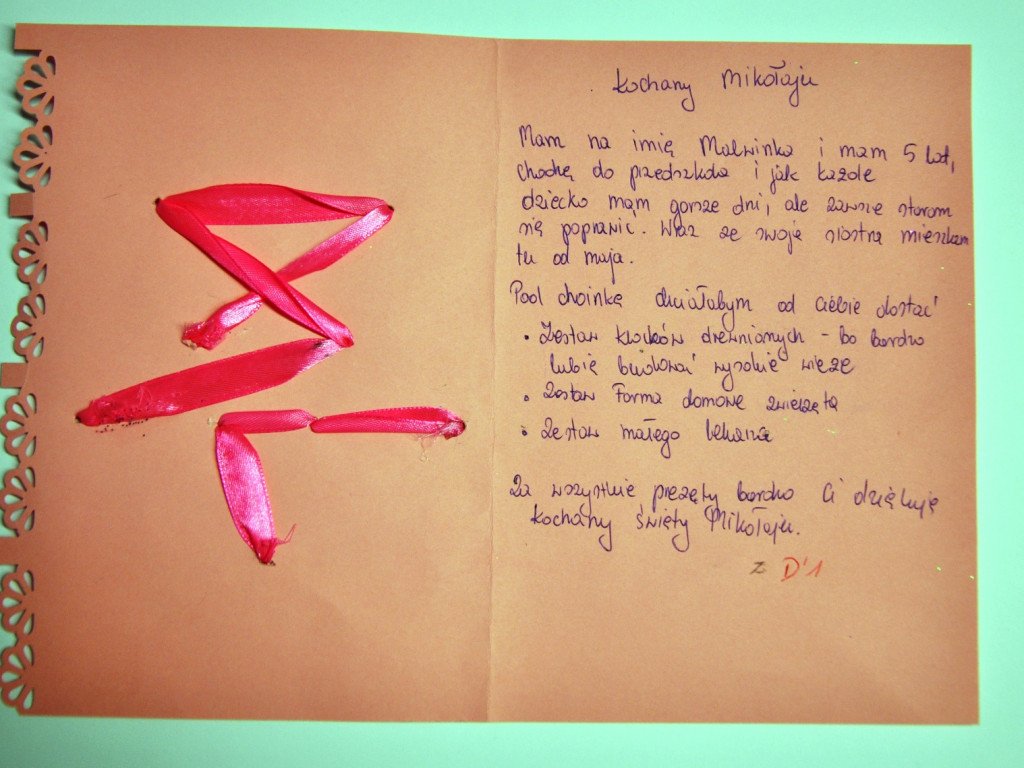 Kochany Mikołaju
Mam na imię Malwinka i mam 5 lat,
chodzę do przedszkola i jak każde
dziecko mam gorsze dni, ale zawsze staram
się poprawić. Wraz ze swoją siostrą mieszkam
tu od maja.
Pod choinkę chciałabym od ciebie dostać
• Zestaw klocków drewnianych - bo bardzo
lubię budować wysokie wieże
• Zestaw Farma domowe zwierzęta
• Zestaw małego lekarza
Za wszystkie prezęty bardzo Ci dziękuję
kochany święty Mikołaju.
z D'1